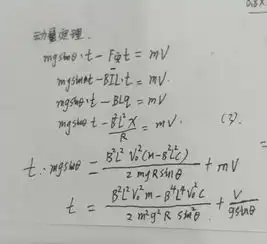 动量定理.
mgsinθ·t - F安t = mV
mgsinθt - BĪL·t = mV.
mgsinθ·t - BLq = mV
mgsinθt - B²L²X/R = mV. (3).
t·mgsinθ = B²L²V₀²(m-B²L²C)/2mgRsinθ + mV
t = B²L²V₀²m - B⁴L⁴V₀²C/2m²g²R sin²θ + V/gsinθ